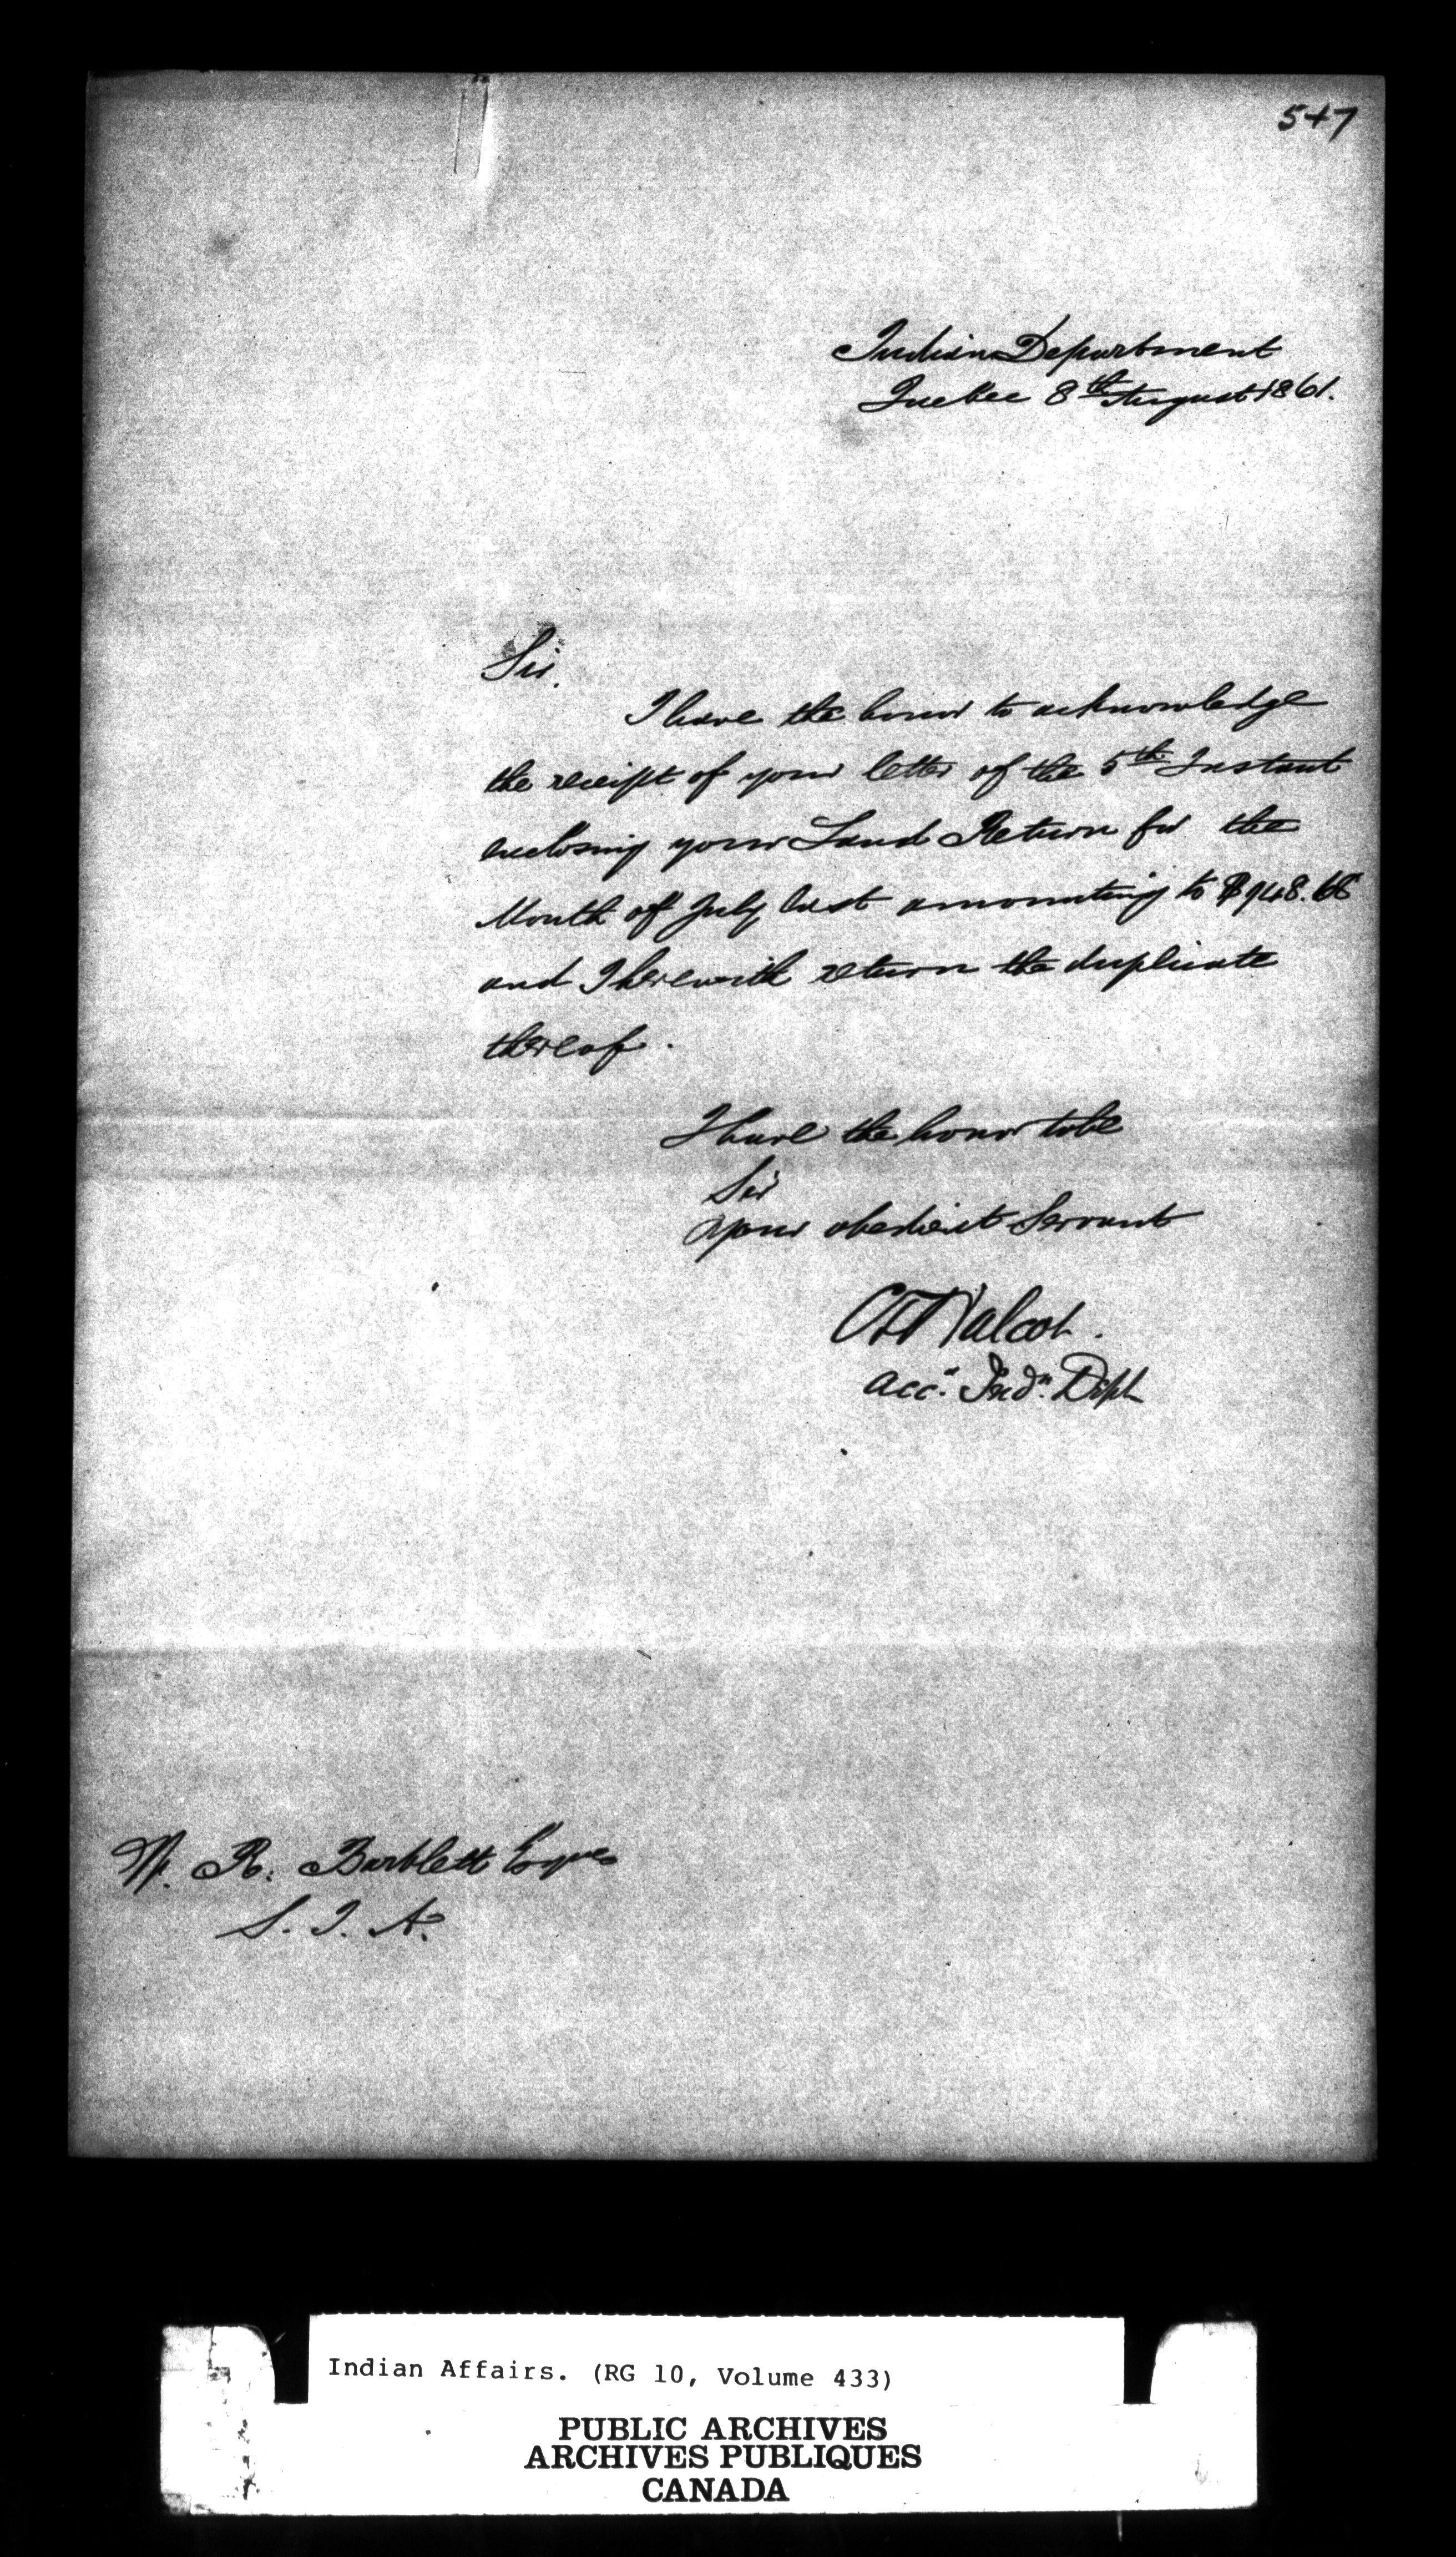 547
Indian Department
Quebec 8th August 1861.
Sir.
I have the honor to acknowledge
the receipt of your letter of the 5th Instant
enclosing your Land Return for the
Month of July last amounting to $948.68
and I herewith return the duplicate
thereof.
I have the honor to be
Sir
Your obedient Servant
C T Walcot.
Acct. Indn. Dept
W. R. Bartlett Esquire
S. I. A.
Indian Affairs. (RG 10, Volume 433)
PUBLIC ARCHIVES
ARCHIVES PUBLIQUES
CANADA